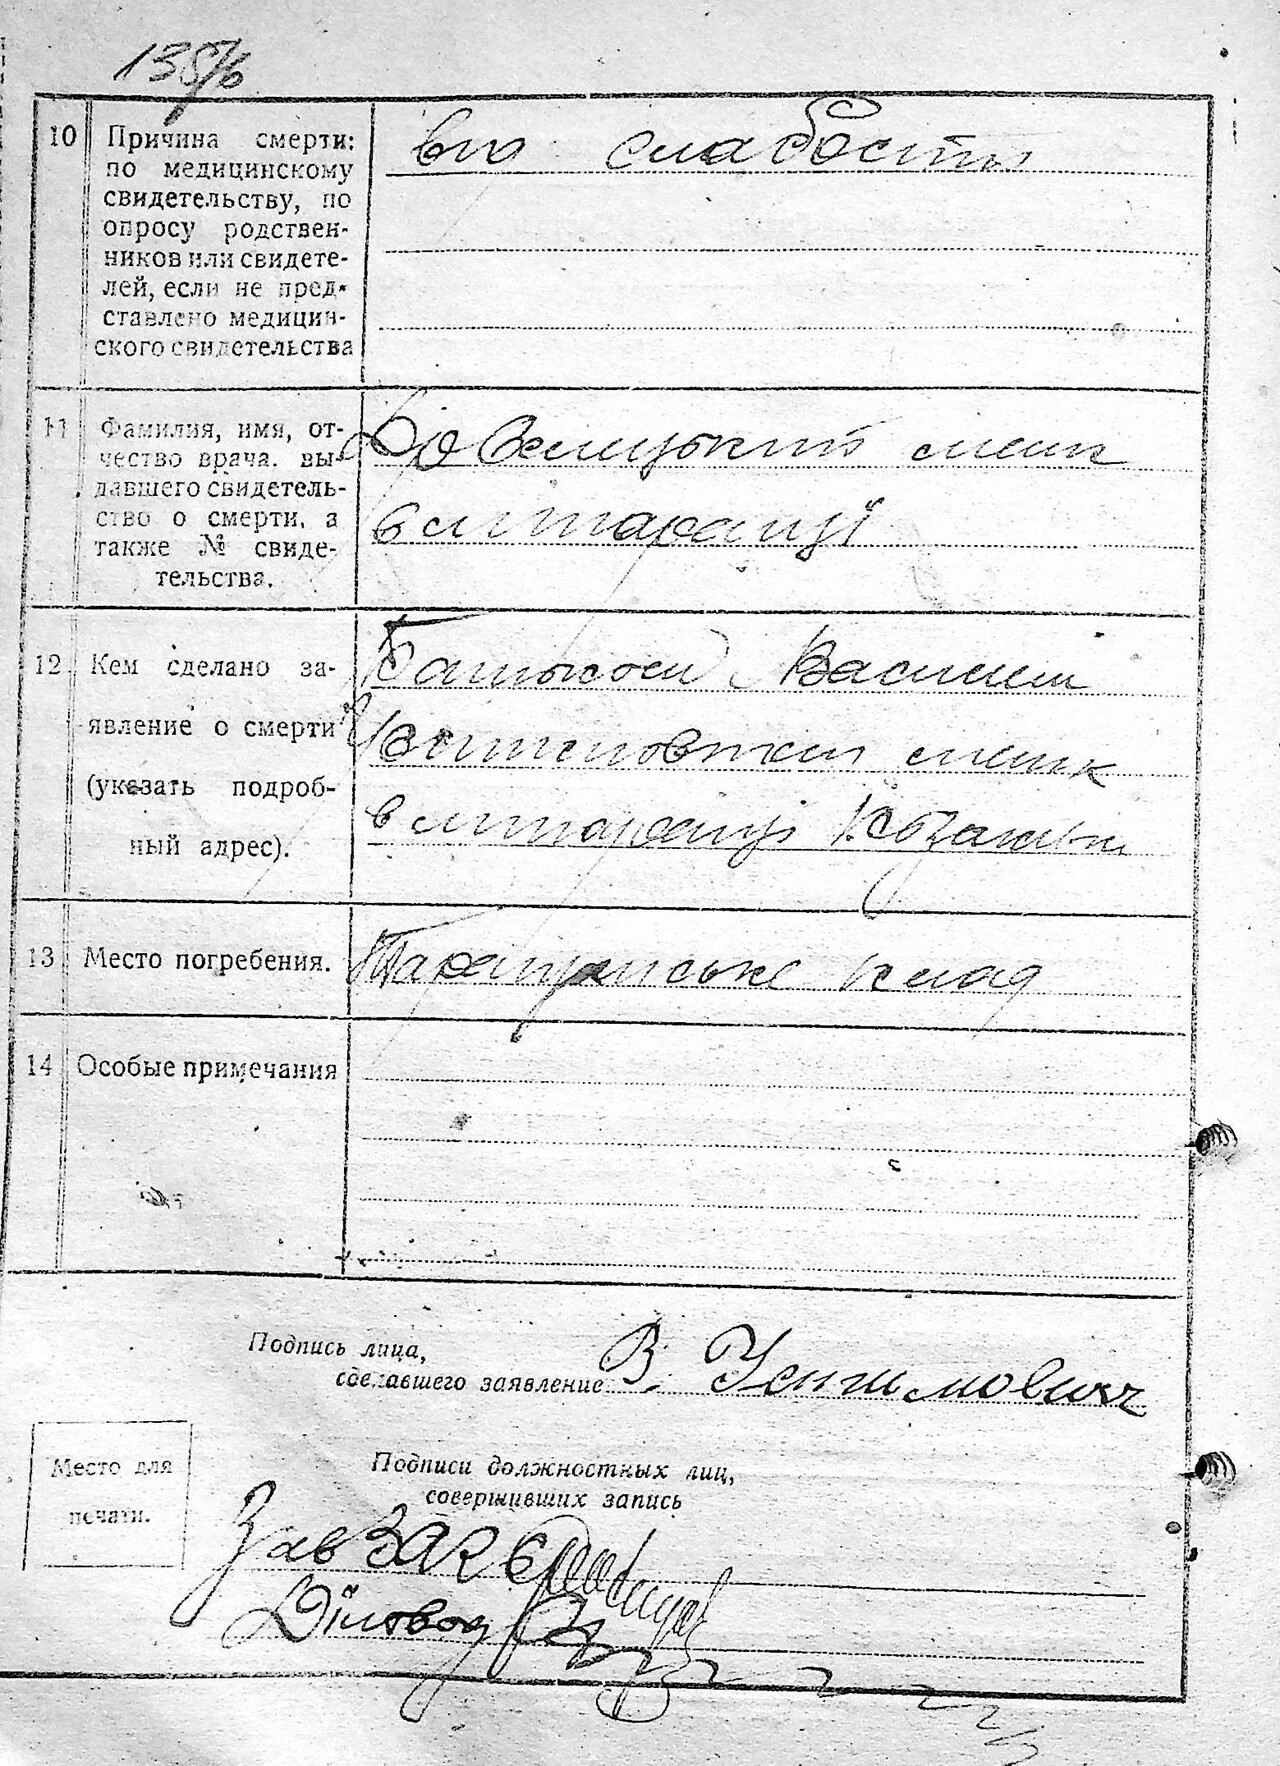 10 Причина смерти:
по медицинскому
свидетельству, по
опросу родствен-
ников или свидете-
лей, если не пред-
ставлено медицин-
ского свидетельства
від слабости
11 Фамилия, имя, от-
чество врача, вы-
давшего свидетель-
ство о смерти, а
также № свиде-
тельства.
мешк
в м Таращі
12 Кем сделано за-
явление о смерти
(указать подроб-
ный адрес).
Батьком Василем
мешк
в м Таращі
13 Место погребения.
Таращанське клад
14 Особые примечания
Подпись лица,
сделавшего заявление
В.
Место для
печати.
Подписи должностных лиц,
совершивших запись
Зав ЗАГС
Діловод